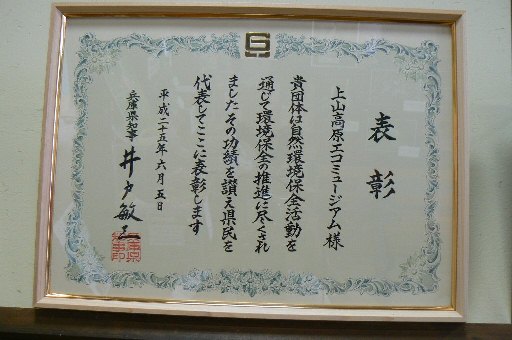 表彰
上山高原エコミュージアム様
貴団体は自然環境保全活動を
通じて環境保全の推進に尽くされ
ましたその功績を讃え県民を
代表してここに表彰します
平成二十五年六月五日
兵庫県知事 井戸敏三